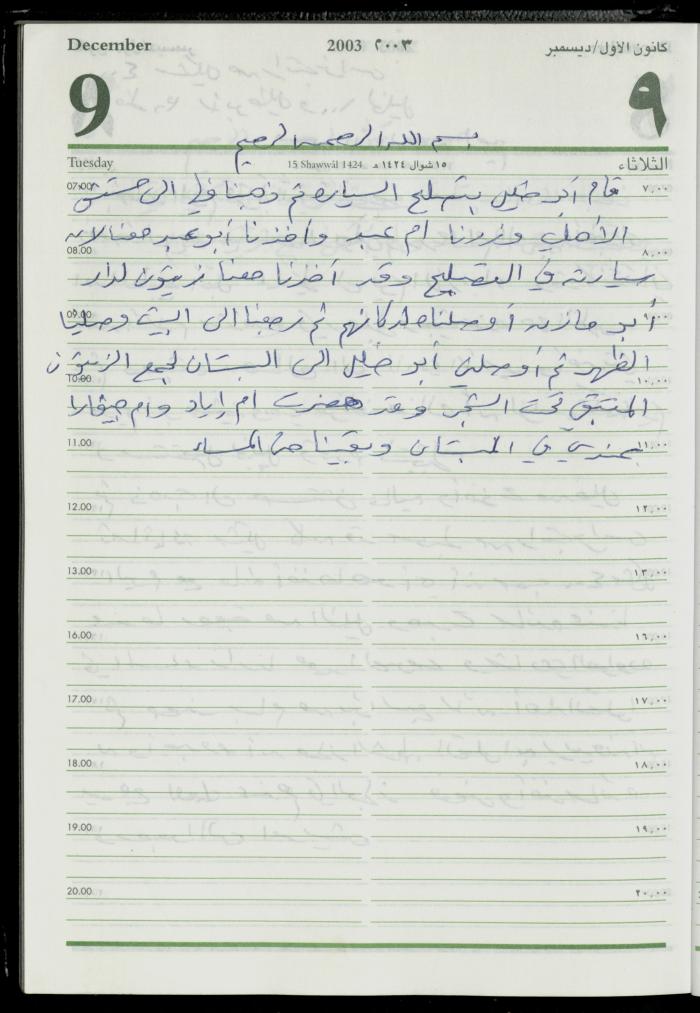 December 2003 ٢٠٠٣ كانون الاول/ديسمبر
9 ٩
بسم الله الرحمن الرحيم
Tuesday 15 Shawwâl 1424 ١٥ شوال ١٤٢٤ هـ الثلاثاء
07.00 قام أبو خليل بتصليح السيارة ثم ذهبنا إلى ٧,٠٠
الأصلي وزرنا أم عبد وأخذنا أبو عبد معنا لان
08.00 ٨,٠٠
سيارته في التصليح وقد أخذنا معنا زيتون لدار
09.00 أبو مازن أوصلناه لدكانهم ثم رجعنا الى البيت وصلينا
الظهر ثم أوصلني أبو خليل الى البستان لجمع الزيتون
10.00 ١٠,٠٠
المتبقي تحت الشجر وقد حضرت ام إياد وام
11.00 عندي في البستان وبقينا حتى المساء ١١,٠٠
12.00 ١٢,٠٠
13.00 ١٣,٠٠
16.00 ١٦,٠٠
17.00 ١٧,٠٠
18.00 ١٨,٠٠
19.00 ١٩,٠٠
20.00 ٢٠,٠٠